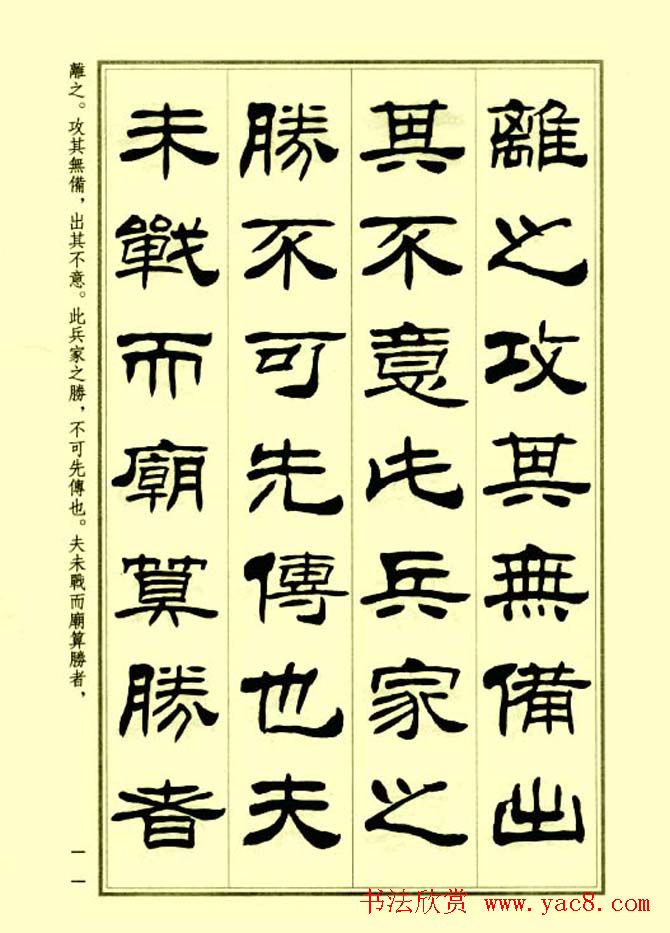 離之攻其無備出
其不意此兵家之
勝不可先傳也夫
未戰而廟筭勝者
離之。攻其無備，出其不意。此兵家之勝，不可先傳也。夫未戰而廟算勝者，
一一
书法欣赏 www.yac8.com